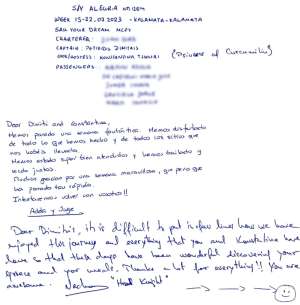 S/Y ALEGRIA
WEEK 15-22.07.2023 - KALAMATA-KALAMATA
SAIL YOUR DREAM
CHARTERER:
CAPTAIN: DIMITRIS
COOK/HOSTESS: KONSTANTINA
PASSENGERS:
Dear Dimitri and Constantina,
Hemos pasado una semana fantástica. Hemos disfrutado
de todo lo que hemos hecho y de todos los sitios que
nos habéis llevado.
Hemos estado super bien atendidos y hemos bailado y
reído juntos.
Muchas gracias por una semana maravillosa, que pena que
ha pasado tan rápido.
Intentaremos volver con vosotros!!
Adela y Jorge
Dear Dimitris, it is difficult to put in few lines how we have
enjoyed this journey and everything that you and Konstantina have
so that these days have been wonderful discovering your
and your meals. Thanks a lot for everything!! You are
awesome.